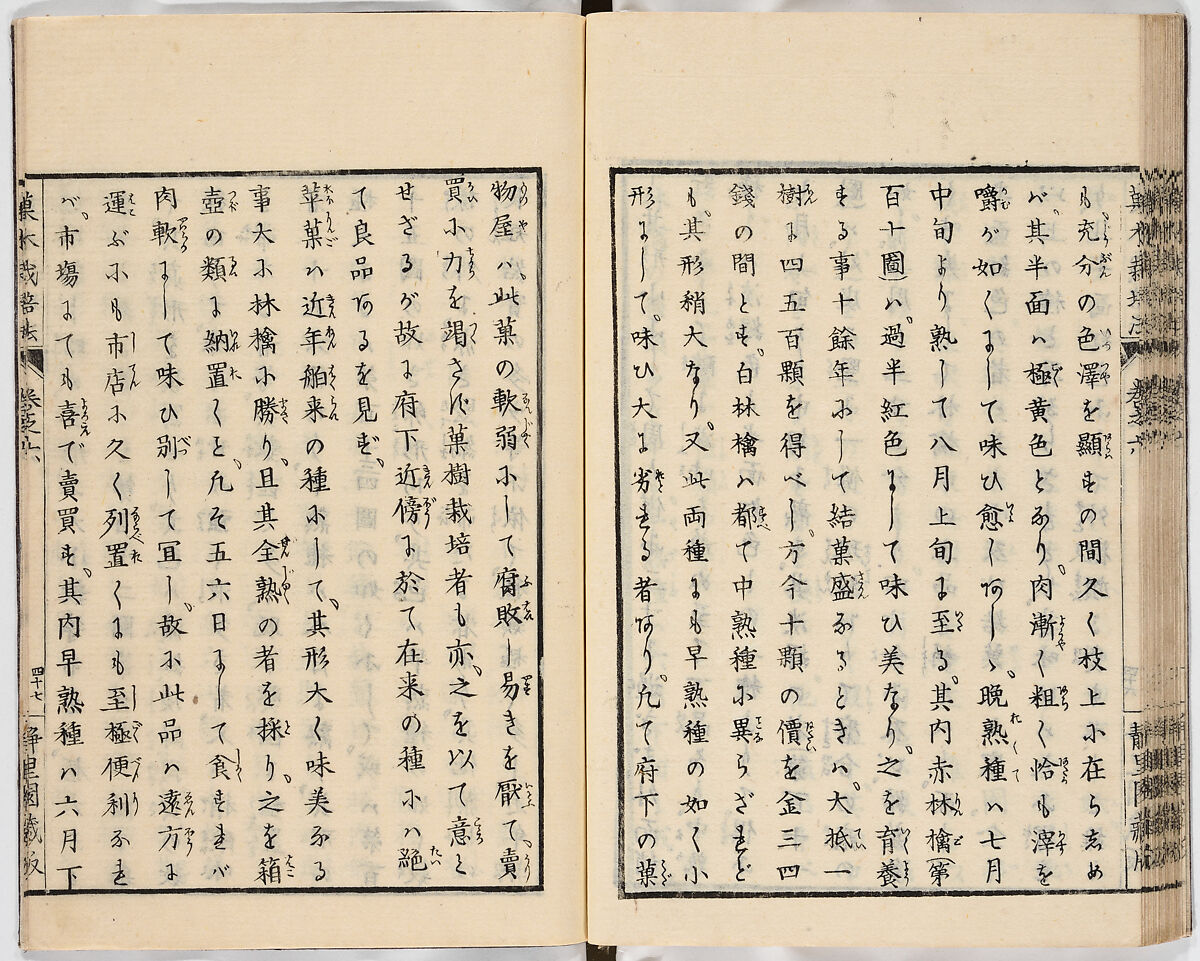 菓木栽培法 巻之六 靜里園藏版
も、充分の色澤を顯すの間久く枝上に在らしめ
バ、其半面ハ極黄色となり、肉漸く粗く恰も滓を
嚼が如くにして味ひ愈しあし、晩熟種ハ七月
中旬より熟して八月上旬に至る、其内赤林檎(第
百十圖)ハ、過半紅色にして味ひ美なり、之を育養
する事十餘年にして結菓盛なるときハ、大抵一
樹に四五百顆を得べし、方今十顆の價を金三四
錢の間とす、白林檎ハ都て中熟種に異らざれど
も、其形稍大なり、又此両種にも早熟種の如く小
形にして、味ひ大に劣れる者あり、凡て府下の菓
物屋ハ、此菓の軟弱にして腐敗し易きを厭て、賣
買に力を竭さず、菓樹栽培者も亦、之を以て意と
せざるが故に、府下近傍に於て在来の種にハ絶
て良品あるを見ず、
苹菓ハ近年舶来の種にして、其形大く味美なる
事大に林檎に勝り、且其全熟の者を採り、之を箱
壺の類に納置くと、凡そ五六日にして食すれバ
肉軟にして味ひ別して宜し、故に此品ハ遠方に
運ぶにも市店に久く列置くにも至極便利なれ
バ、市塲にても喜で賣買す、其内早熟種ハ六月下
菓木栽培法 巻之六 四十七 靜里園藏版